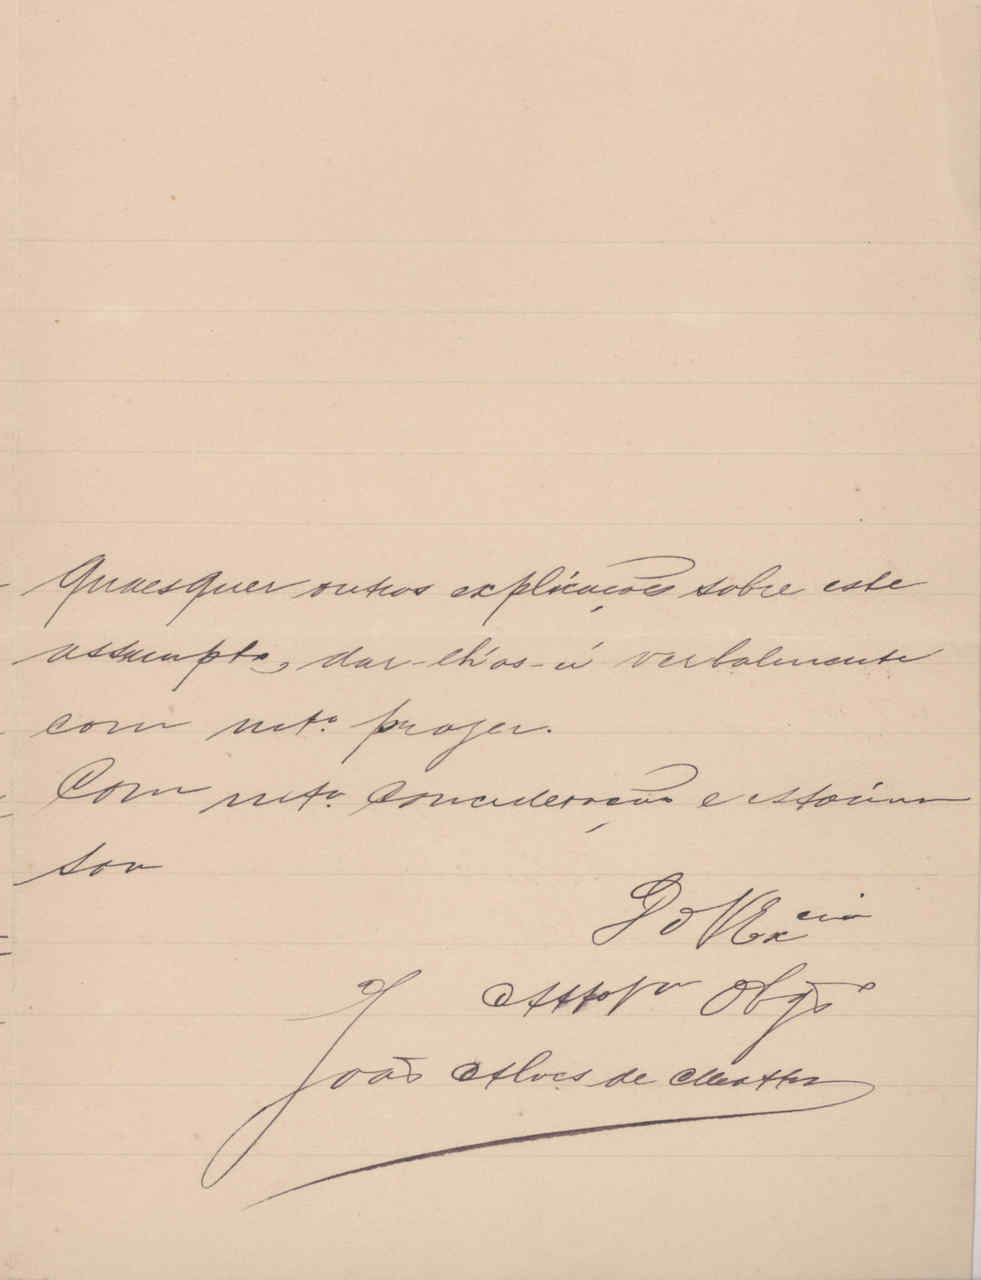 Quaesquer outras explicações sobre este
assumpto, dar-lh'as-ei verbalmente
com mto. prazer.
Com mta. concideração e estima
sou
De V Excia
Atto Vor Obgdo
João Alves de Mattos